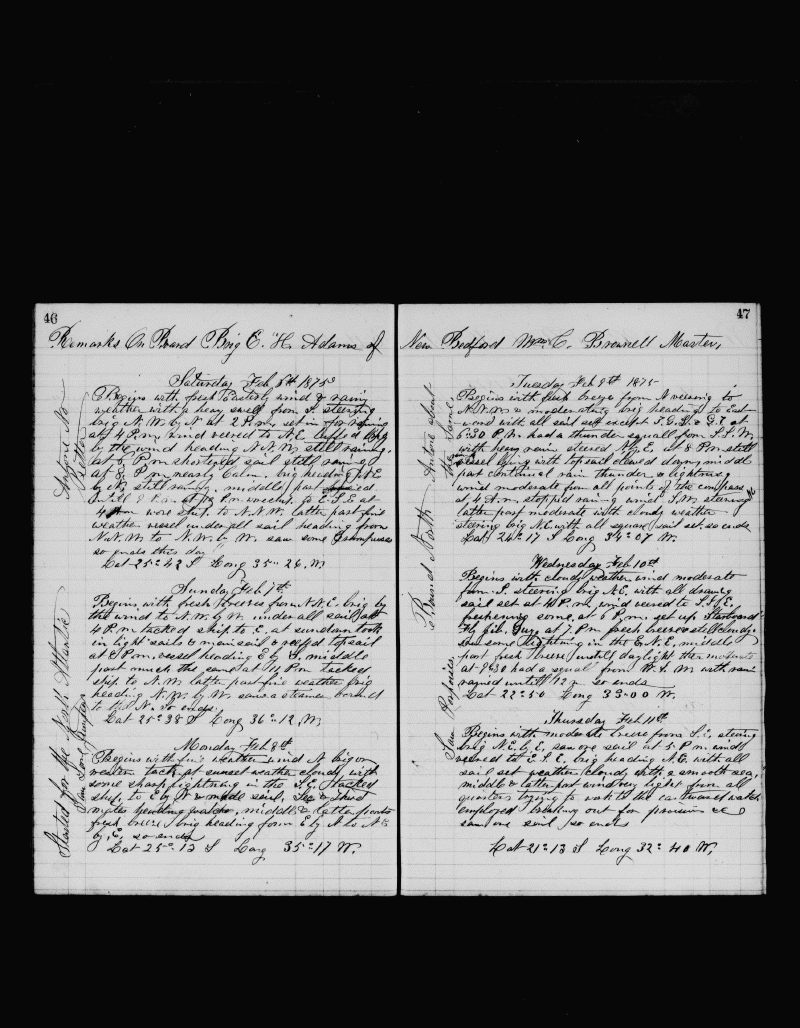 46
Remarks On Board Brig E. H. Adams of
Saturday Feb 6th 1875
Begins with fresh Easterly wind & rainy
weather with a heavy swell from S. steering
brig N.W. by N at 2 P.m. set in for raining
at 4 P.m. wind veered to N.E. luffed brig
by the wind heading N.N.W. still raining,
at 5 P.m shortened sail still raining
at 8 P.m nearly calm, brig heading N.E
by N. still raining, middle part
4 wore ship to N.N.W. latter part fine
weather vessel under all sail heading from
N.N.W. to N.W. by W. saw some Grampuses
so ends this day
Lat 25 = 42 S Long 35 = 26. W.
Antone No
Better
Sunday Feb 7th
Begins with fresh breezes from N.N.E. brig by
the wind to N.W. by W. under all sail at
4 P.m tacked ship to E. at sundown took
in light sails & mainsail & reefed topsail
at 8 P.m. vessel heading E by S. middle
part much the same at 11 P.m tacked
ship to N.W. latter part fine weather brig
heading N.W. by W. saw a steamer bound
to the N. so ends
Lat 25 = 38 S Long 36 = 12. W.
Started for the North Atlantic
Saw Some Grampus
Monday Feb 8th
Begins with fine weather wind N brig on
western tack at sunset weather cloudy with
some sharp lightning in the S.E. tacked
ship to E by N & made sail,
mates watch, middle & latter parts
fresh breeze brig heading from E by N to N E
by E. so ends
Lat 25 = 13 S Long 35 = 17 W.
47
New Bedford Wm. C. Brownell Master,
Tuesday Feb 9th 1875
Begins with fresh breeze from N veering to
N.N.W. & moderating brig heading to East-
ward with all sail set except at
6:30 P.m. had a thunder squall from S.S.W.
with heavy rain steered N.E. at 8 P.m still
vessel lying with topsail clewed down, middle
part continual rain thunder & lightning
wind moderate from all points of the compass
at 4 A.m. stopped raining wind S.W. steering
latter part moderate with cloudy weather
steering brig N.E with all square sail set. so ends
Lat 24 = 17 S Long 34 = 07 W.
Antone about
the Same
Bound North
Wednesday Feb 10th
Begins with cloudy weather wind moderate
from S. steering brig N.E. with all drawing
sail set at 4 P.m. wind veered to S.S.E.
freshening some, at 6 P.m. got up Starboard
at 7 P.m fresh breeze & still cloudy
and some lightning in the E.N.E. middle
part fresh breeze until daylight then moderate
at 9:30 had a squall from W.S.W with rain
rained until 12 m so ends
Lat 22 = 50 Long 33 = 00 W.
Saw Porpoises
Thursday Feb 11th
Begins with moderate breeze from S.E. steering
brig N.E. by E. saw one sail at 5 P.m wind
veered to E.S.E. brig heading N.E. with all
sail set weather cloudy with a smooth sea,
middle & latter part wind very light from all
quarters trying to work to the Eastward watch
employed breaking out for provisions &c
saw one sail so ends
Lat 21 = 13 S Long 32 = 40 W.